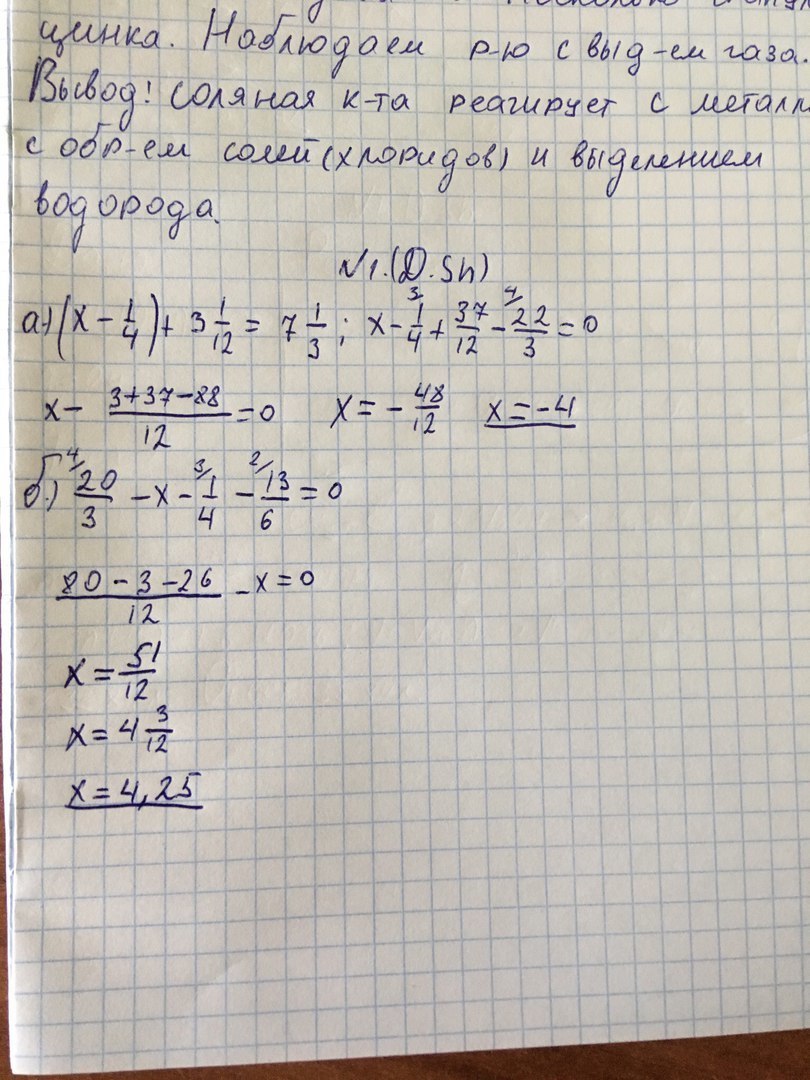 цинка. Наблюдаем р-ю с выд-ем газа.
Вывод: соляная к-та реагирует с металл
с обр-ем солей (хлоридов) и выделением
водорода.
№1. (D. Sh)
а) (x - 1/4) + 3 1/12 = 7 1/3 ; x - 3/ 1/4 + 37/12 - 4/ 22/3 = 0
x - (3+37-88)/12 = 0 x = - 48/12 x = -4
б.) 4/ 20/3 - x - 3/ 1/4 - 2/ 13/6 = 0
(80 - 3 - 26)/12 - x = 0
x = 51/12
x = 4 3/12
x = 4,25